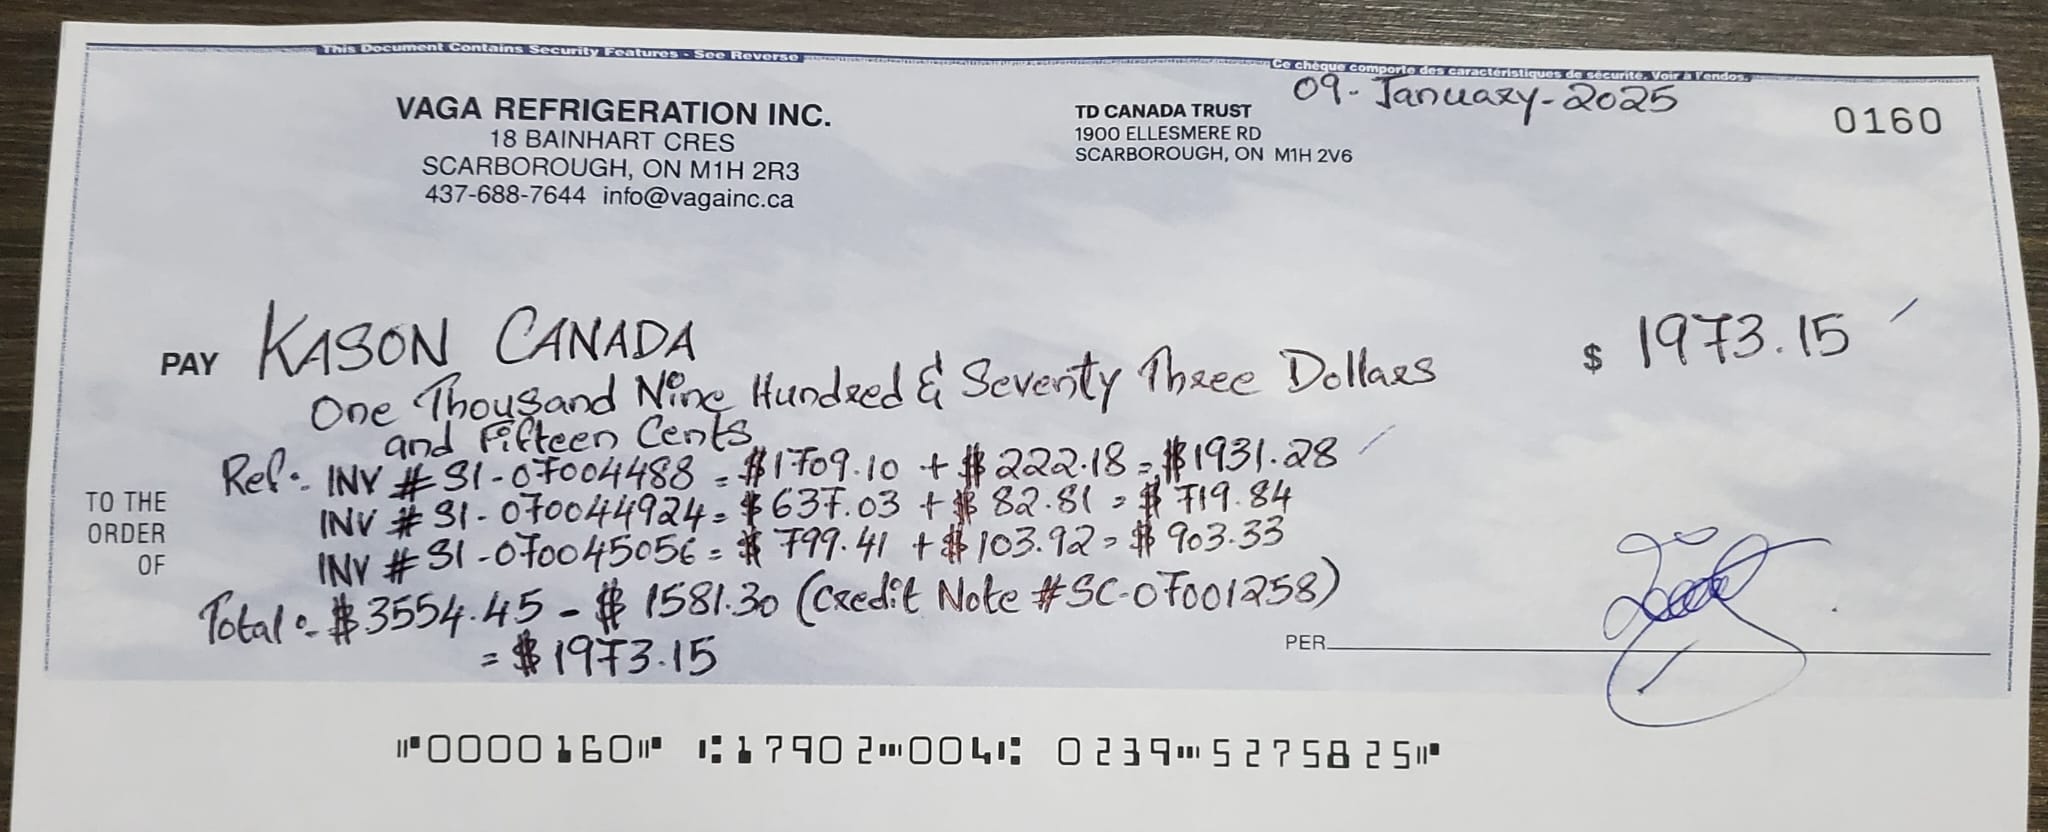 This Document Contains Security Features - See Reverse
Ce chèque comporte des caractéristiques de sécurité. Voir à l'endos.
VAGA REFRIGERATION INC.
18 BAINHART CRES
SCARBOROUGH, ON M1H 2R3
437-688-7644 info@vagainc.ca
TD CANADA TRUST
1900 ELLESMERE RD
SCARBOROUGH, ON M1H 2V6
09-January-2025
0160
PAY KASON CANADA
$ 1973.15
One Thousand Nine Hundred & Seventy Three Dollars
and Fifteen Cents
Ref:- INV # SI-07004488 = $1709.10 + $222.18 = $1931.28
INV # SI-070044924 = $637.03 + $82.81 = $719.84
INV # SI-070045056 = $799.41 + $103.92 = $903.33
TO THE
ORDER
OF
Total:- $3554.45 - $1581.30 (Credit Note #SC-07001258)
= $1973.15
PER
⑈0000160⑈ ⑆17902⑉004⑆ 0239⑉5275825⑈